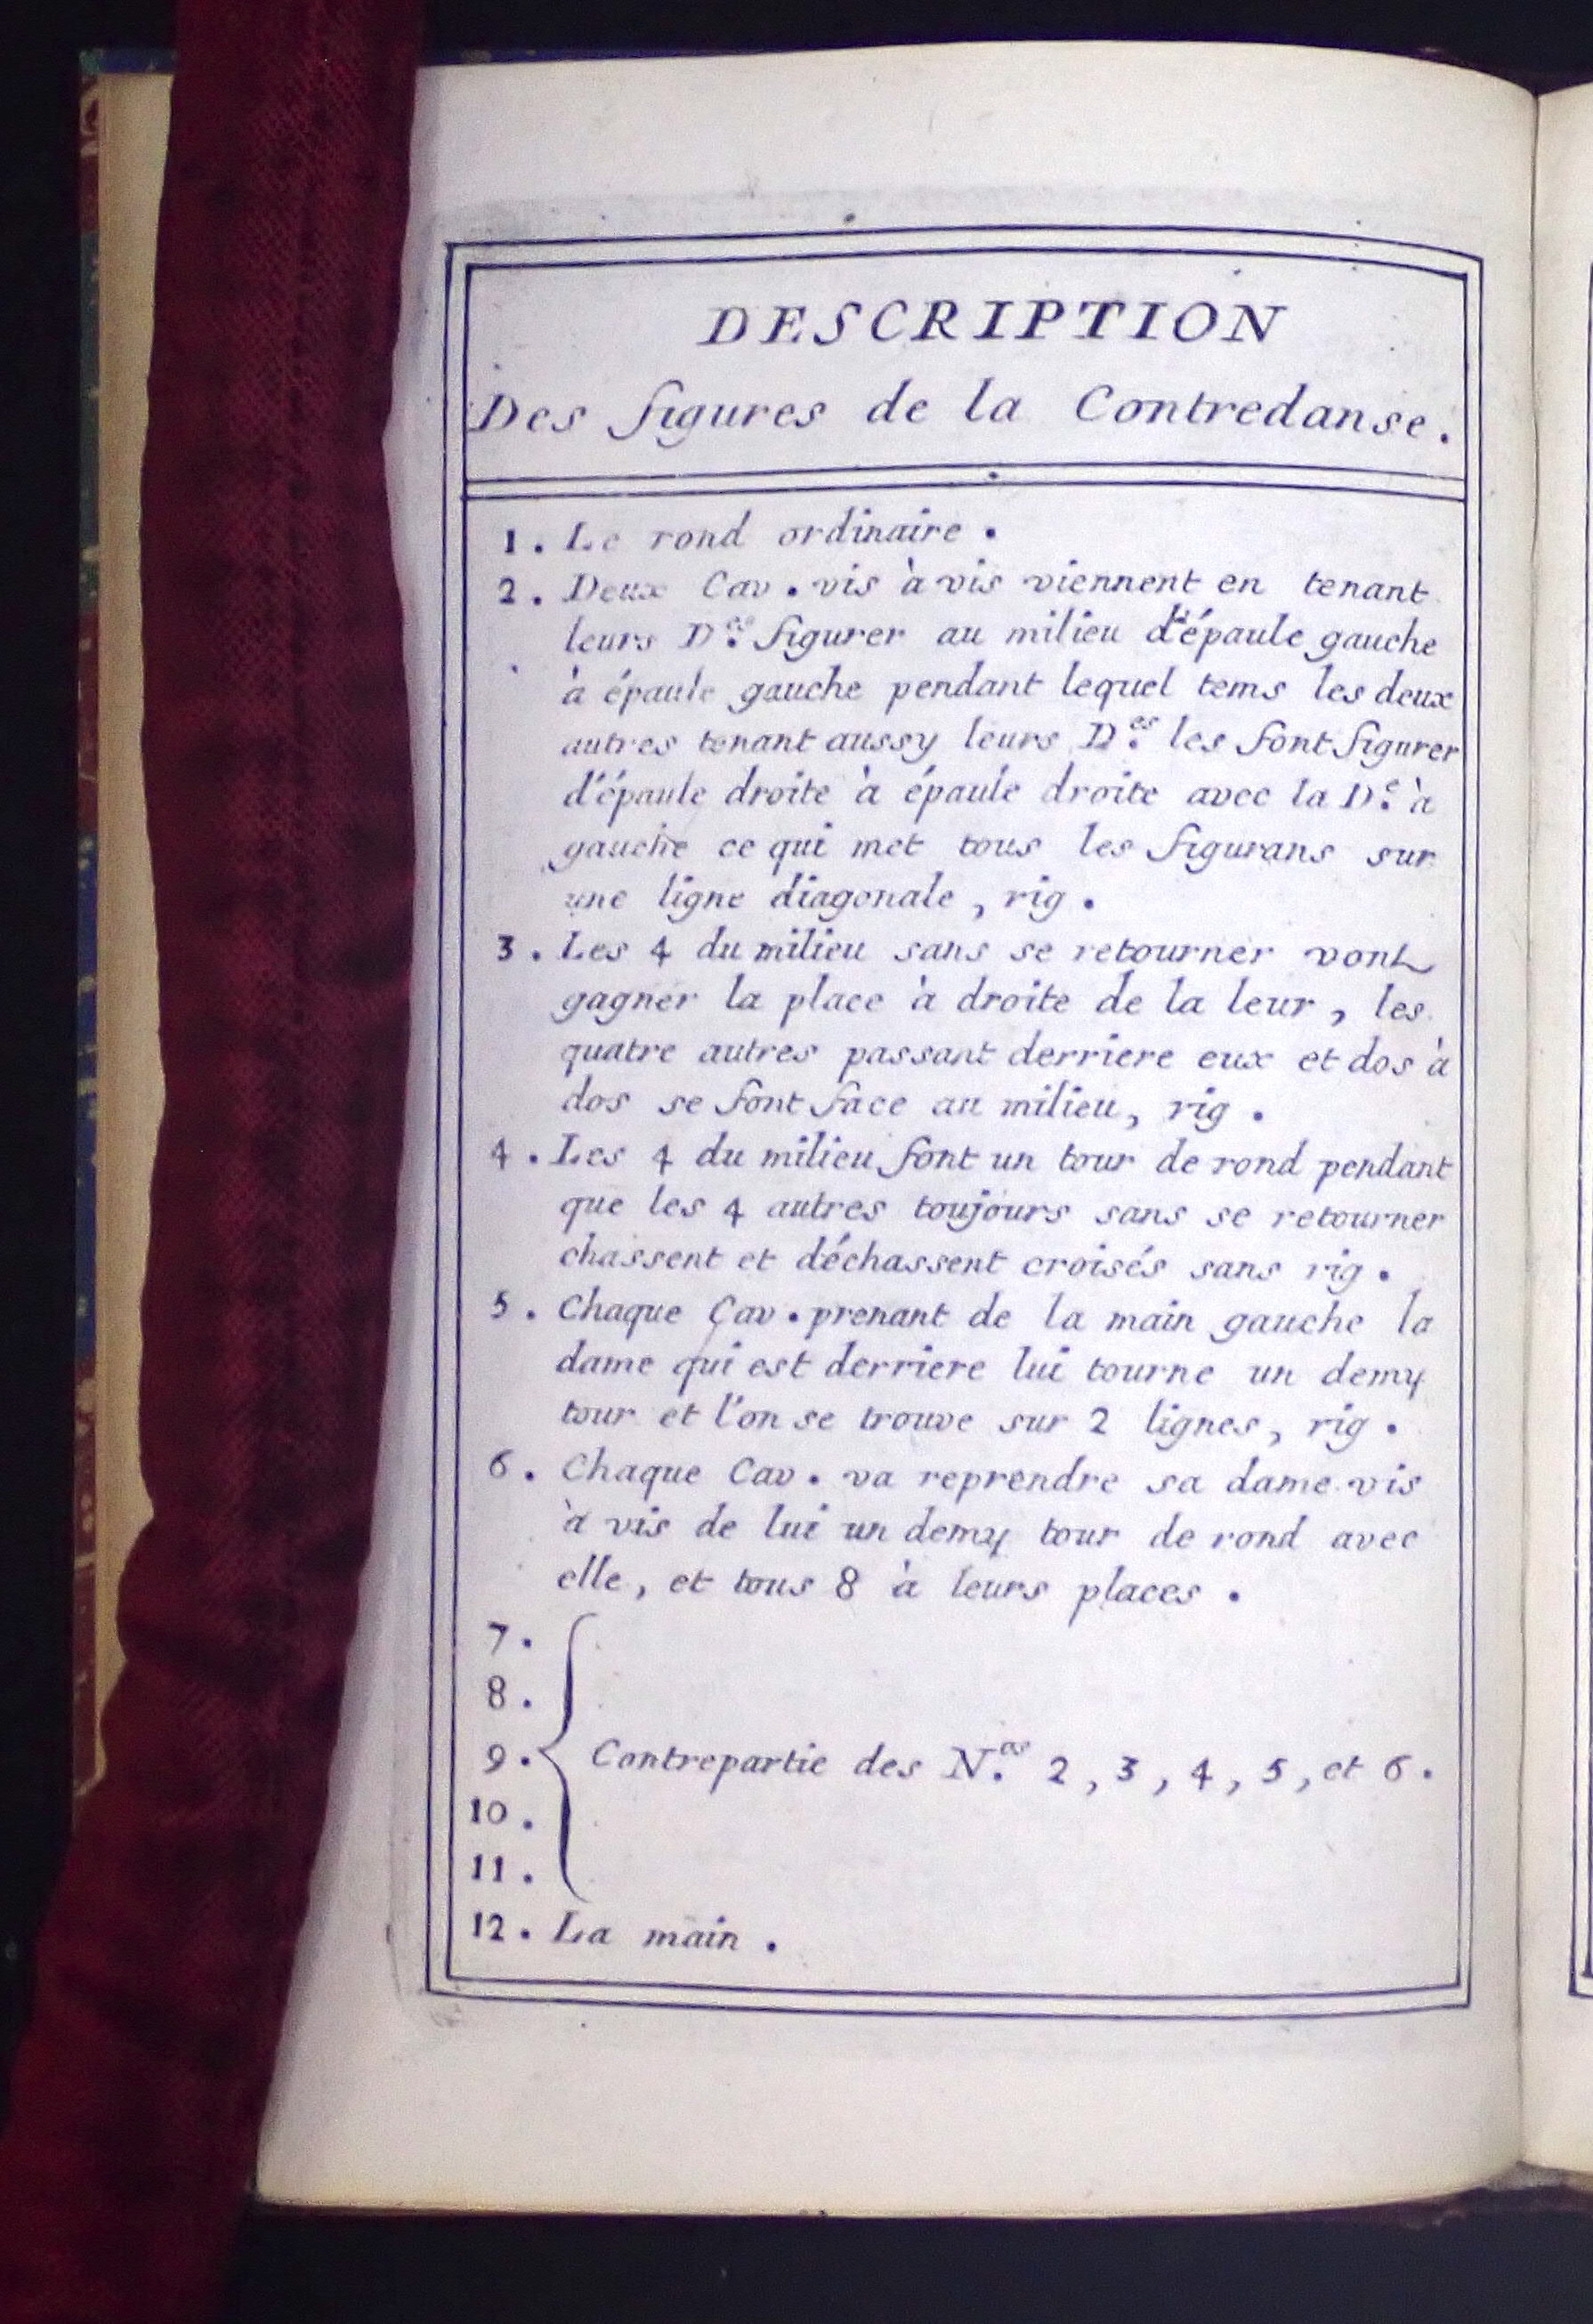 DESCRIPTION
Des figures de la Contredanse.
1. Le rond ordinaire.
2. Deux Cav. vis à vis viennent en tenant
leurs D.es figurer au milieu d'épaule gauche
à épaule gauche pendant lequel tems les deux
autres tenant aussy leurs D.es les font figurer
d'épaule droite à épaule droite avec la D.e à
gauche ce qui met tous les figurans sur
une ligne diagonale, rig.
3. Les 4 du milieu sans se retourner vont
gagner la place à droite de la leur, les
quatre autres passant derriere eux et dos à
dos se font face au milieu, rig.
4. Les 4 du milieu font un tour de rond pendant
que les 4 autres toujours sans se retourner
chassent et déchassent croisés sans rig.
5. Chaque Cav. prenant de la main gauche la
dame qui est derriere lui tourne un demy
tour et l'on se trouve sur 2 lignes, rig.
6. Chaque Cav. va reprendre sa dame vis
à vis de lui un demy tour de rond avec
elle, et tous 8 à leurs places.
7.
8.
9. Contrepartie des N.os 2, 3, 4, 5, et 6.
10.
11.
12. La main.